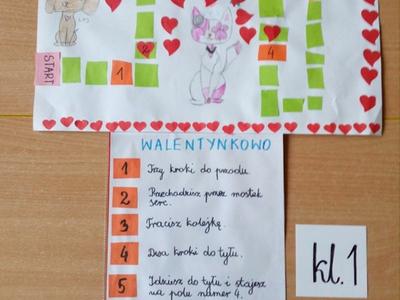 START
1
2
4
WALENTYNKOWO
1 Trzy kroki do przodu.
2 Przechodzisz przez mostek
serc.
3 Tracisz kolejkę.
4 Dwa kroki do tyłu.
5 Idziesz do tyłu i stajesz
na polu numer 4.
kl. 1